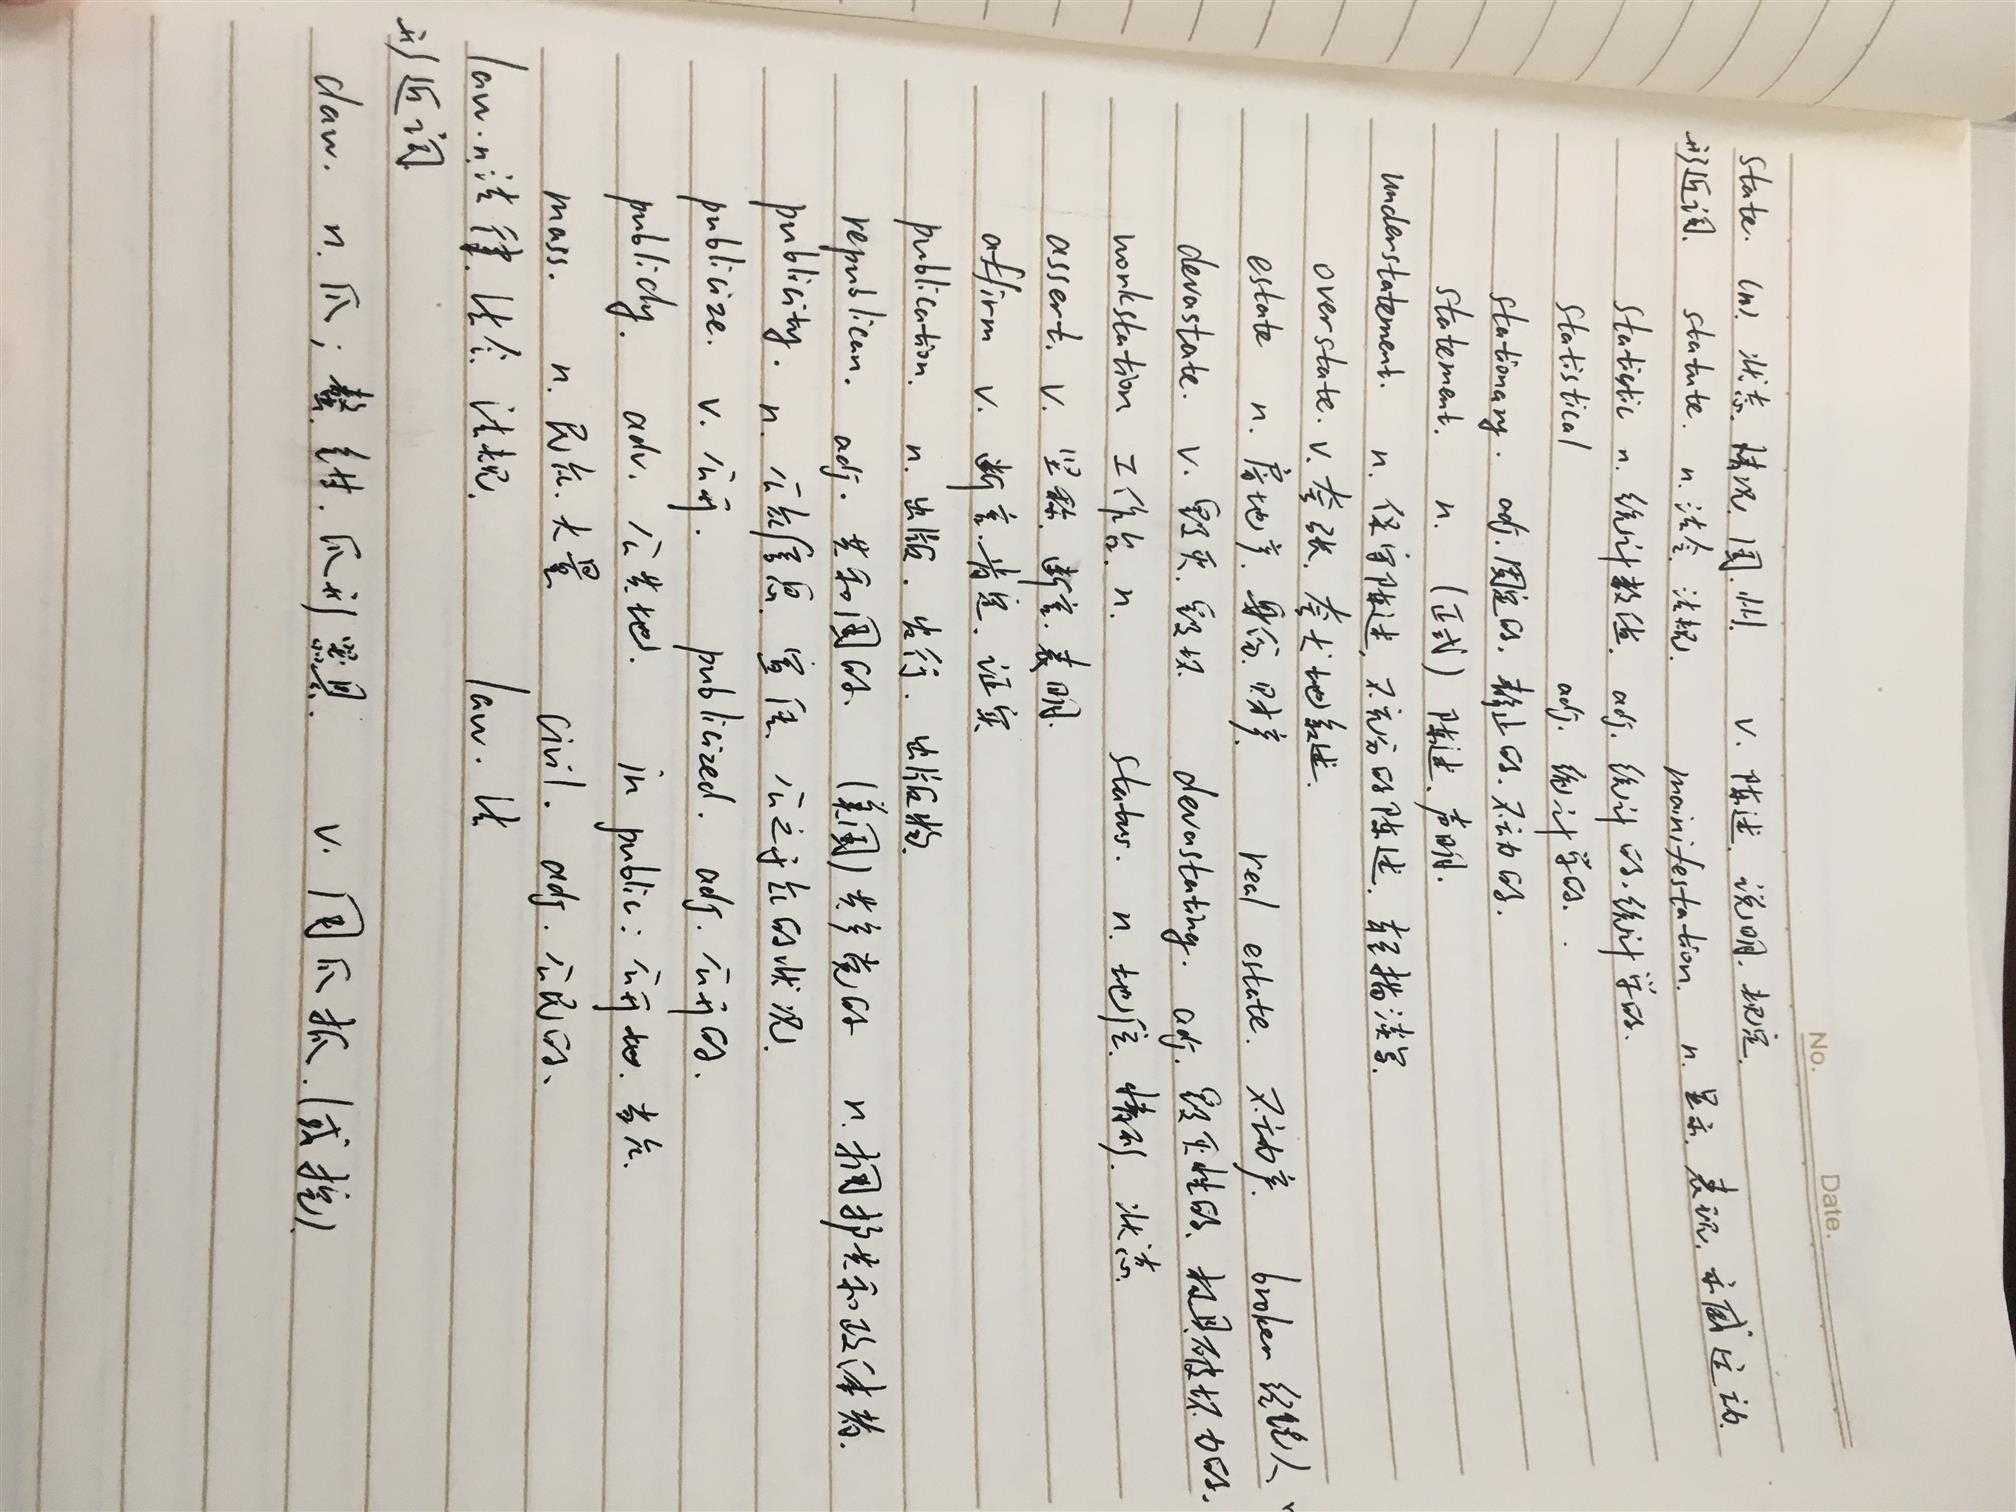 No.            Date.
state. (n) 状态. 情况. 国. 州.   v. 陈述. 说明. 规定.
形近词. statute. n. 法令. 法规.   mainifestation. n. 显示. 表现. 示威运动.
statistic n. 统计数值. adj. 统计的. 统计学的.
statistical   adj. 统计学的.
stationary. adj. 固定的. 静止的. 不动的.
statement. n. (正式) 陈述. 声明.
understatement. n. 保守陈述. 不充分的陈述. 轻描淡写.
overstate. v. 夸张. 夸大地叙述.
estate n. 房地产. 身份. 财产.   real estate. 不动产.   broker 经纪人
devastate. v. 毁灭. 毁坏   devastating. adj. 毁灭性的. 极具破坏力的.
workstation 工作台. n.   status. n. 地位. 情形. 状态.
assert. v. 坚称. 断言. 表明.
affirm v. 断言. 肯定. 证实
publication. n. 出版. 发行. 出版物.
republican. adj. 共和国的. (美国) 共和党的   n. 拥护共和政体者.
publicity. n. 公众信息. 宣传. 公之于众的状况.
publicize. v. 公开.   publicized. adj. 公开的.
publicly. adv. 公共地.   in public: 公开地. 当众.
mass. n. 民众. 大量   civil. adj. 公民的.
law. n. 法律. 法令. 法规.   law. 法
形近词
claw. n. 爪; 螯. 钳. 爪形器具.   v. 用爪抓. (或挖)